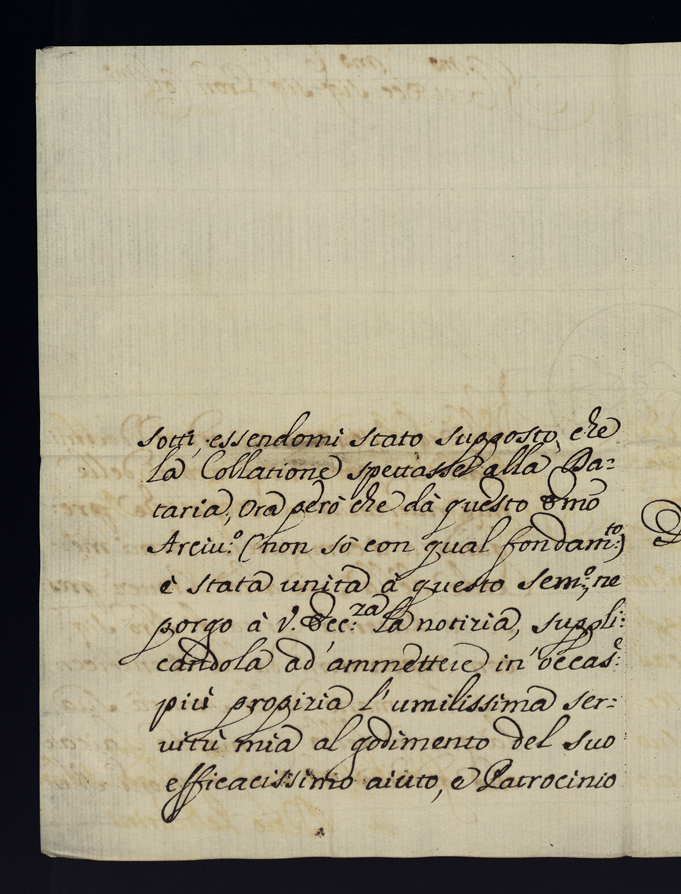 sotti, essendomi stato supposto, che
la Collatione spettasse alla Da=
taria; Ora però che da questo Emo
Arciu.o (non sò con qual fondam.to)
è stata unita à questo Sem.o, ne
porgo à V. Ecc.za la notizia, suppli:
candola ad ammettere in occas.e
più propizia l'umilissima ser:
vitù mia al godimento del suo
efficacissimo aiuto, e Patrocinio